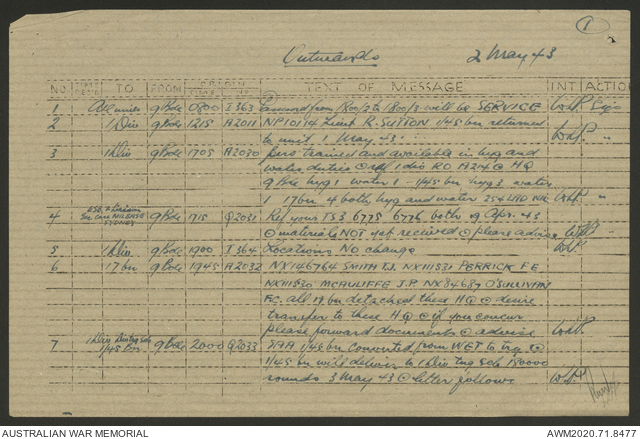 1
Outwards 2 May 43
NO TO FROM ORIGIN TEXT OF MESSAGE INT ACTION
1 All units g Bde 0800 I363 from 1800/2 to 1800/3 will be SERVICE
2 1 Div g Bde 1215 A2011 NP10174 Lieut R. SUTTON 1/45 bn returned
to unit 1 May 43.
3 1 Div g Bde 1705 A2030 Pers trained and available in hyg and
water duties 1 div RO A214 HQ
g Bde hyg 1 water 1 - 1/45 bn hyg 3 water
1 17 bn 4 both hyg and water 254 LAD NIL
4 MILBASE SYDNEY g Bde 1715 Q2031 Ref your TS3 6775 6776 both of Apr. 43
materials NOT yet received please advise
5 1 Div g Bde 1900 I364 Locations No change
6 17 bn g Bde 1945 A2032 NX146764 SMITH NX111531 PERRICK F E
NX111530 McAULIFFE J.P. NX84687 O'SULLIVAN
F.C. all 17 bn detached these HQ desire
transfer to these HQ if you concur
please forward documents advise
7 1 Div 1/45 Bn g Bde 2000 Q2033 1/45 bn converted from WET to
1/45 bn will deliver to 1 Div 180000
rounds 3 May 43 letter follows
AUSTRALIAN WAR MEMORIAL AWM2020.71.8477